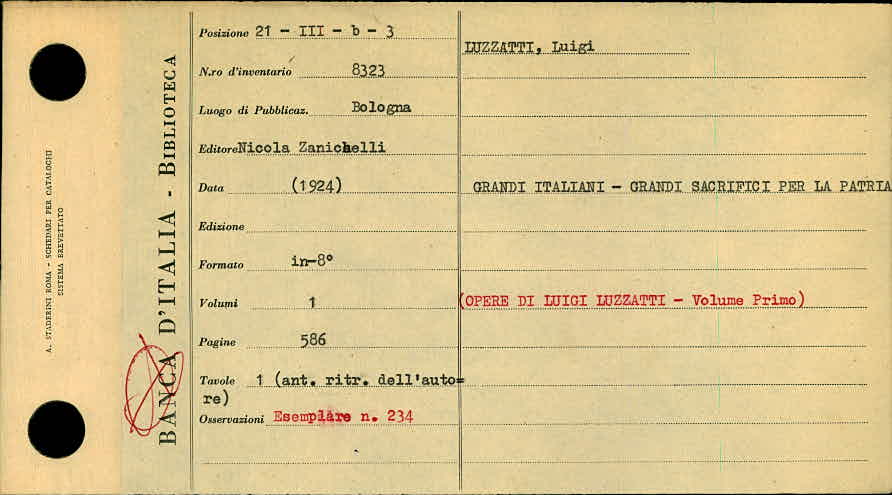 A. STADERINI ROMA - SCHEDARI PER CATALOGHI
SISTEMA BREVETTATO
BANCA D'ITALIA - BIBLIOTECA
Posizione 21 - III - b - 3
N.ro d'inventario 8323
Luogo di Pubblicaz. Bologna
Editore Nicola Zanichelli
Data (1924)
Edizione
Formato in-8°
Volumi 1
Pagine 586
Tavole 1 (ant. ritr. dell'auto=
re)
Osservazioni Esemplare n. 234
LUZZATTI, Luigi
GRANDI ITALIANI - GRANDI SACRIFICI PER LA PATRIA
(OPERE DI LUIGI LUZZATTI - Volume Primo)